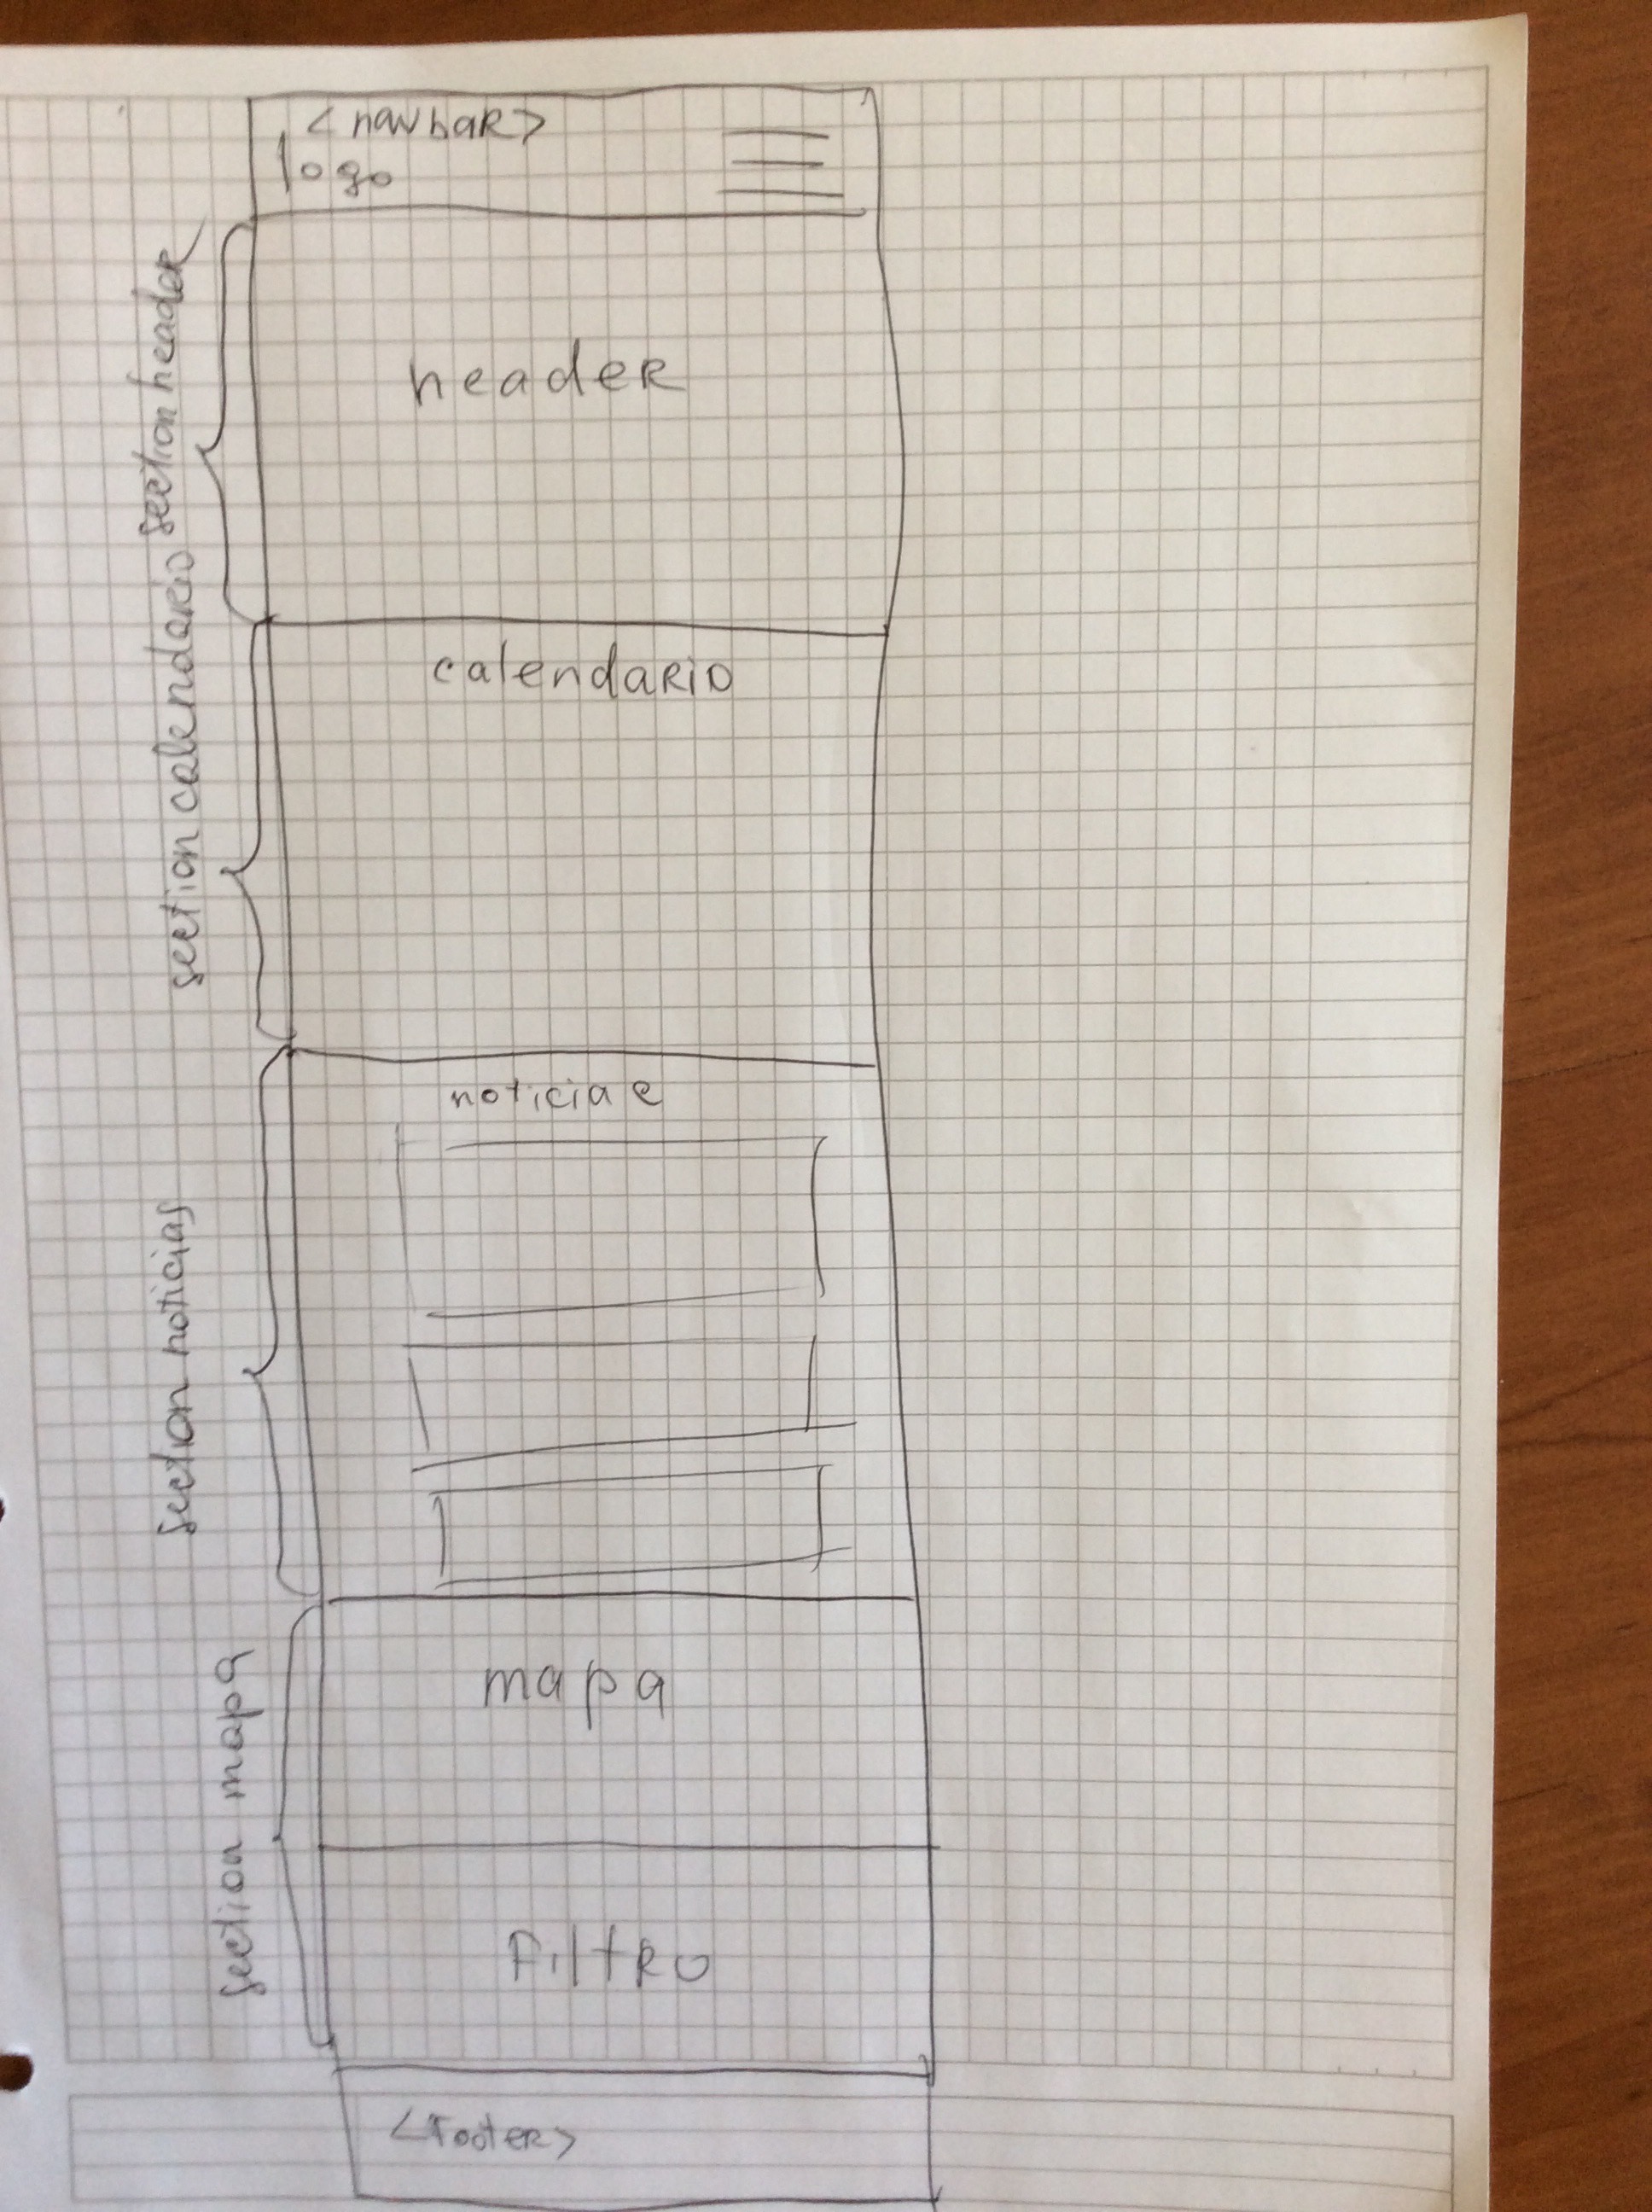 <navbar>
logo
section header
header
section calendario
calendario
section noticias
noticiae
section mapa
mapa
Filtro
<Footer>